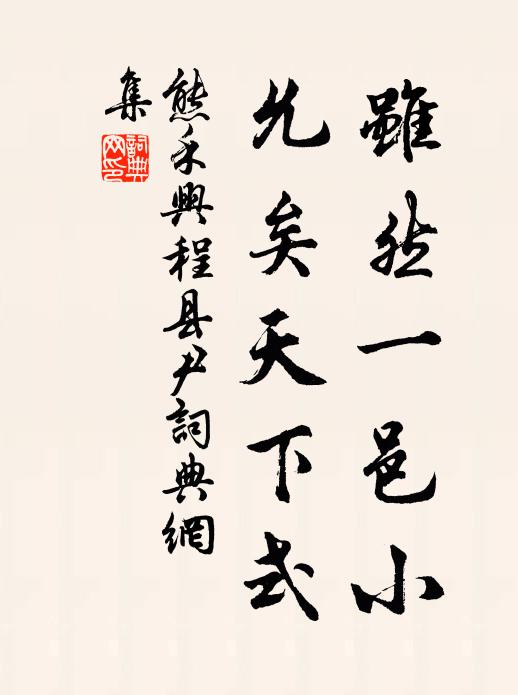 雖然一邑小
允矣天下式
熊禾興程县尹詞典網
集
詞典网印